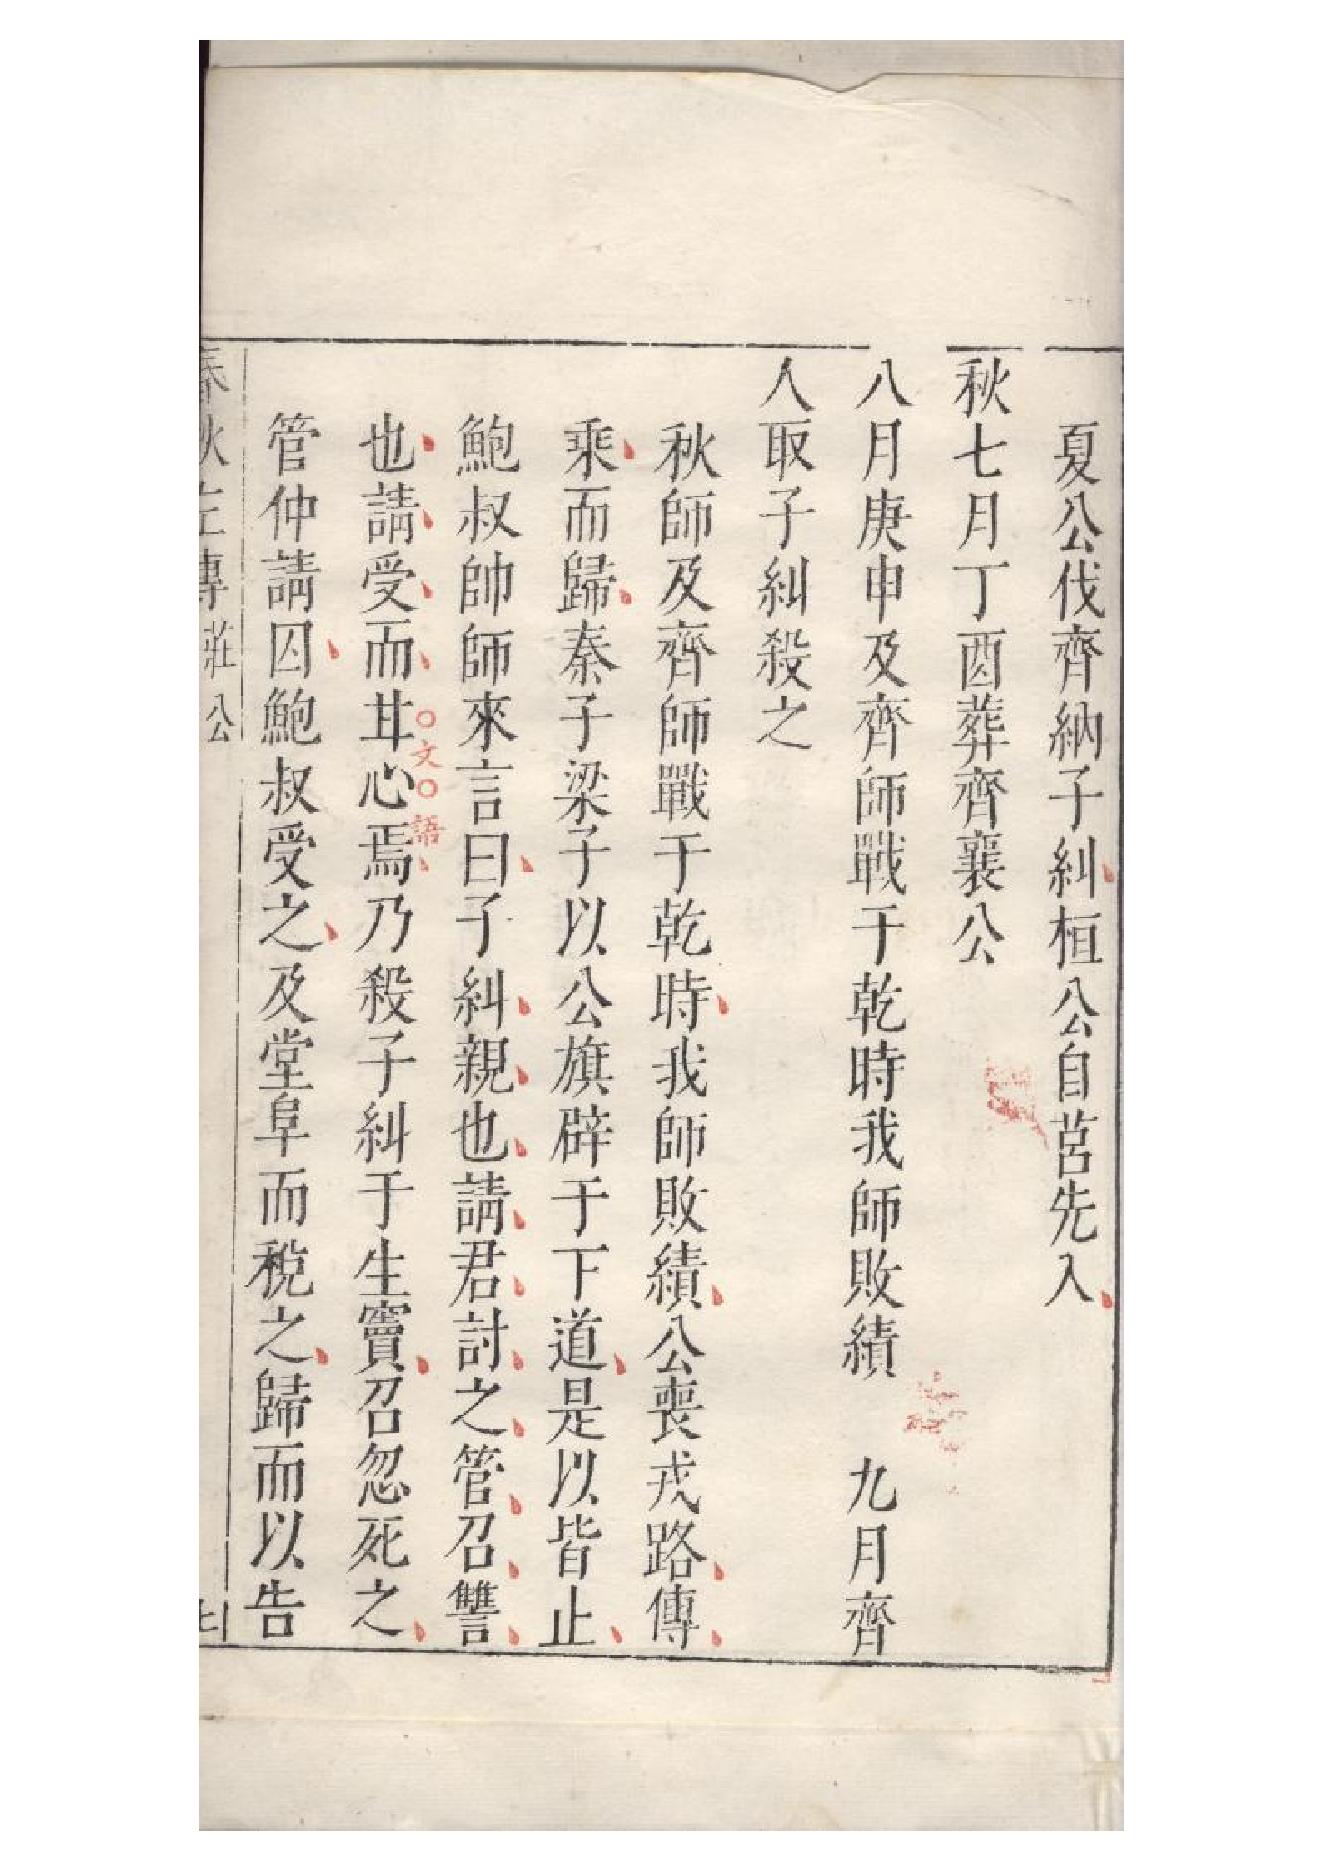 夏公伐齊納子糾桓公自莒先入
秋七月丁酉葬齊襄公
八月庚申及齊師戰于乾時我師敗績　九月齊
人取子糾殺之
秋師及齊師戰于乾時我師敗績公喪戎路傳
乘而歸秦子梁子以公旗辟于下道是以皆止
鮑叔帥師來言曰子糾親也請君討之管召讐
也請受而甘心焉乃殺子糾于生竇召忽死之
○文○語
管仲請囚鮑叔受之及堂阜而稅之歸而以告
春秋左傳 莊公 七